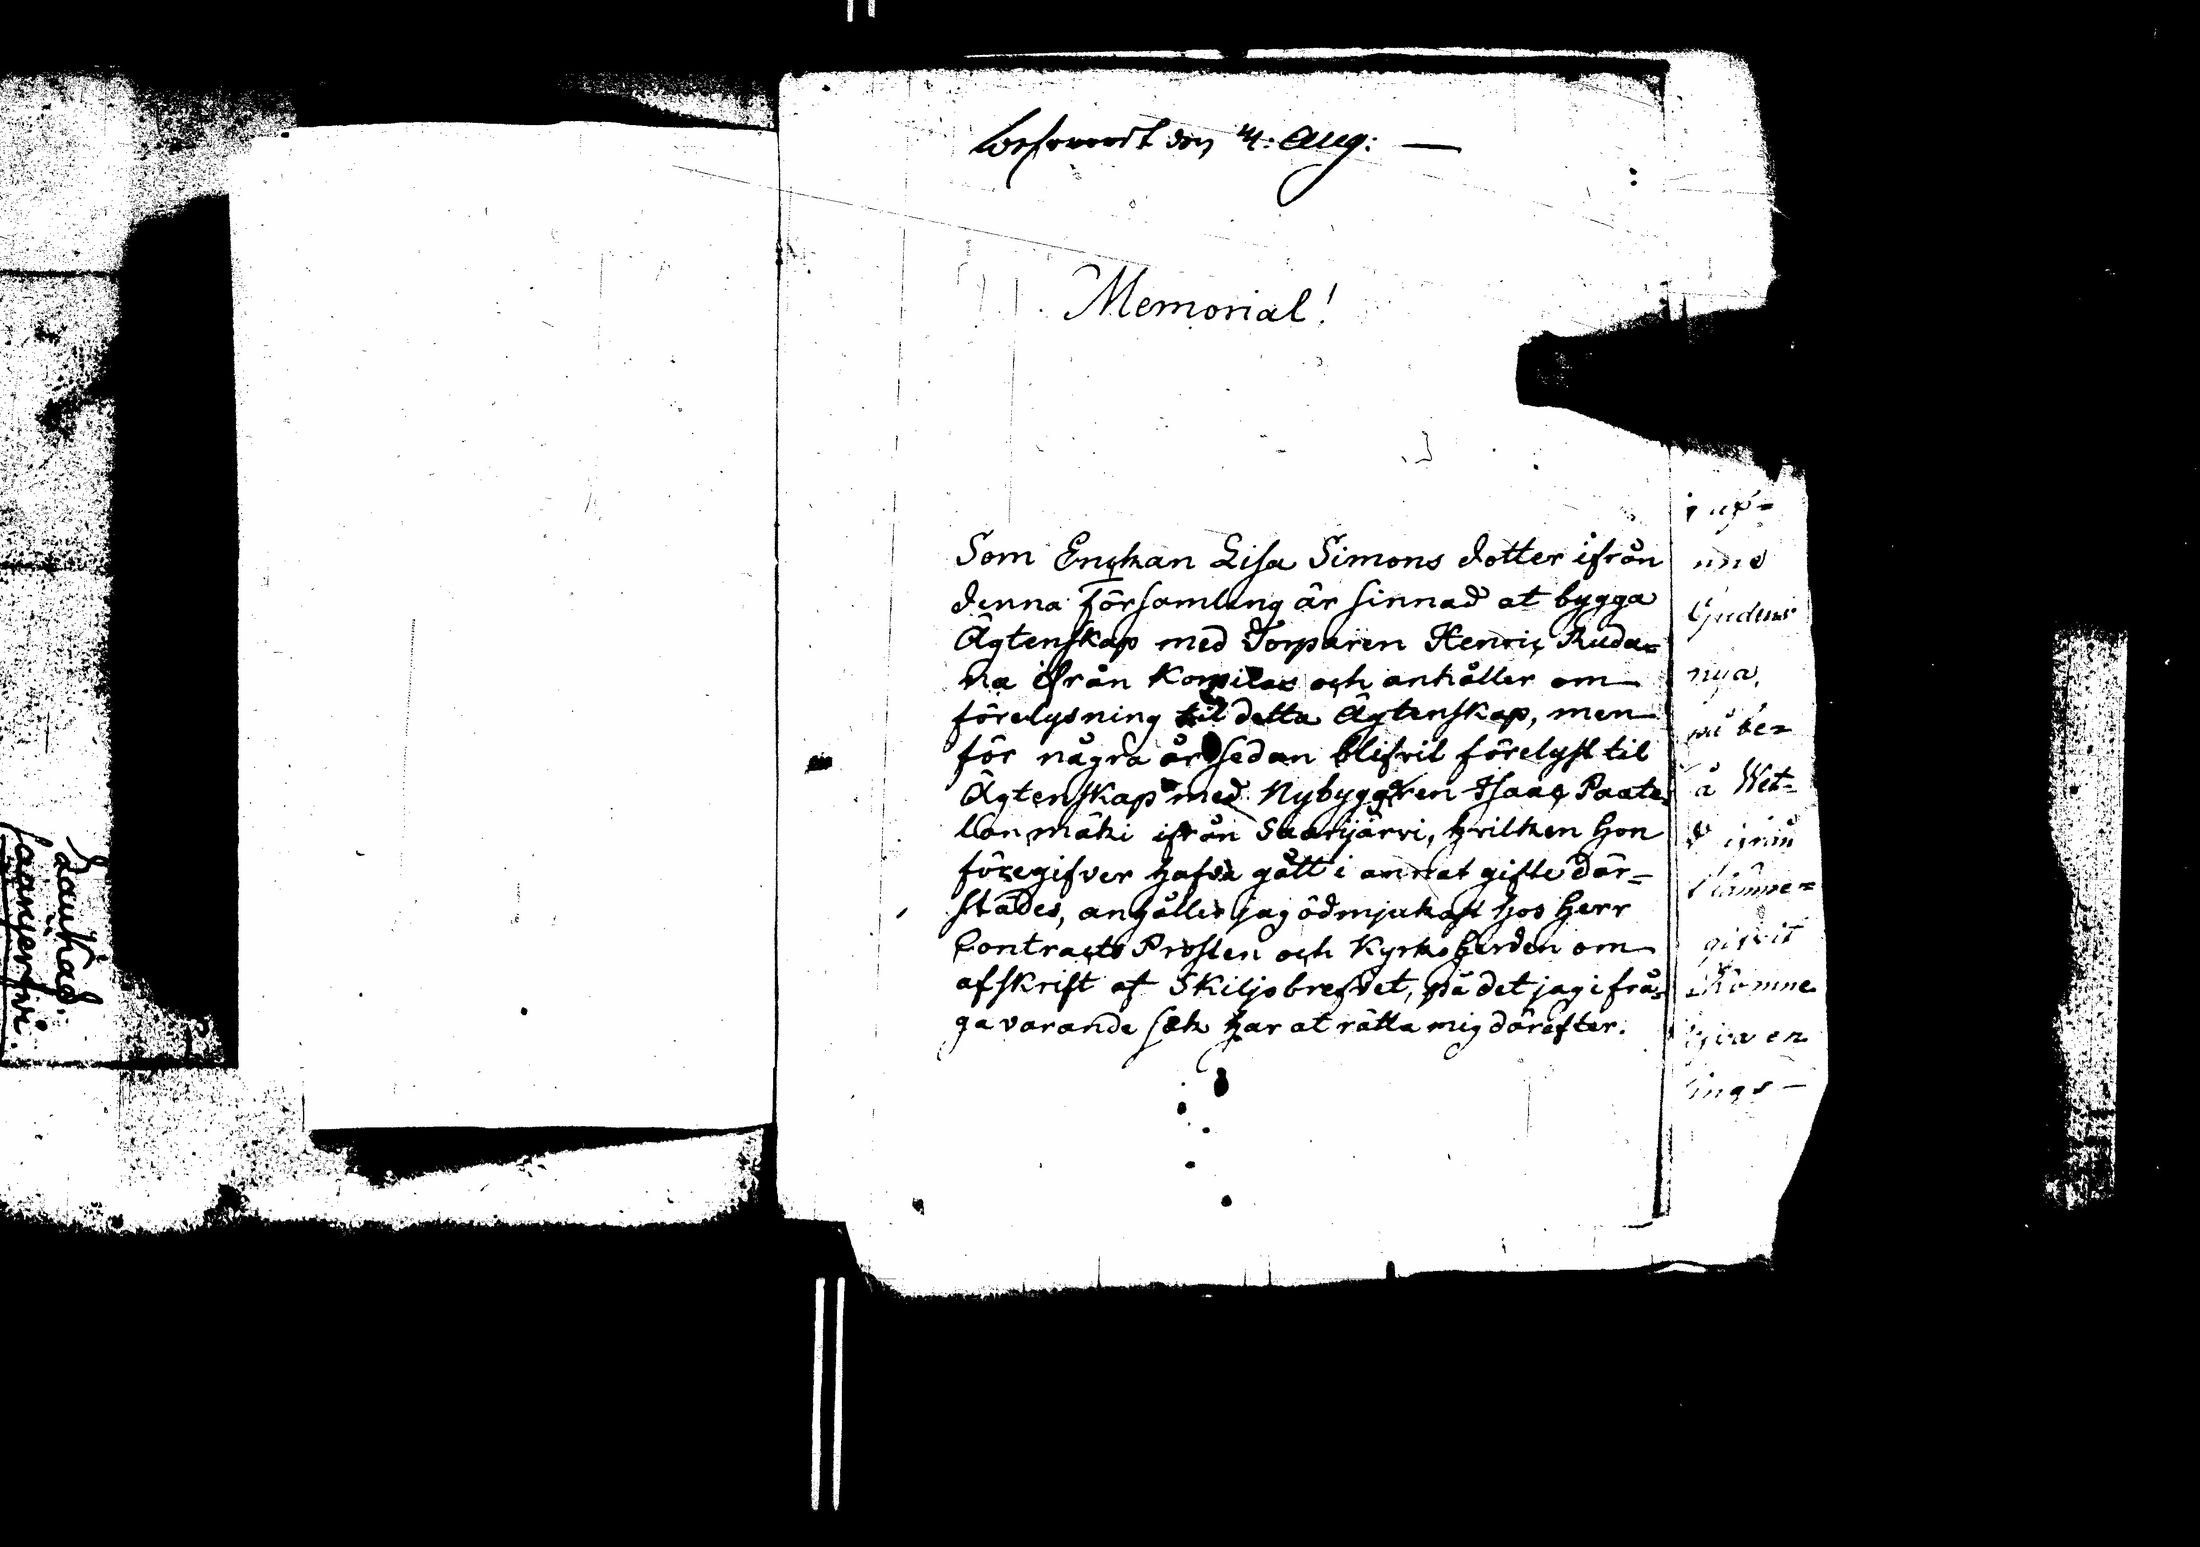 Besvarat den 4: Aug: —
Memorial!
Som Enckan Lisa Simons dotter ifrån
denna Församling är sinnad at bygga
Ägtenskap med Torparen Henric Ruda=
na ifrån Kompilax och anhåller om
förelysning til detta Ägtenskap, men
för några år sedan blifvit förelyst til
Ägtenskap med Nybyggaren Isaac Paate
lan mäki ifrån Saarijärvi, hvilken hon
föregifver hafva gått i annat gifte där=
städes, anhåller jag ödmjukast hos Herr
Contracts Prosten och Kyrkoherden om
afskrift af Skiljobrefvet, på det jag i frå=
ga varande sak har at rätta mig därefter.
Gudens
nya
be=
å Wet=
ifrån
gifvit
komne
en
ings —
Laukas
Saarijerfvi.